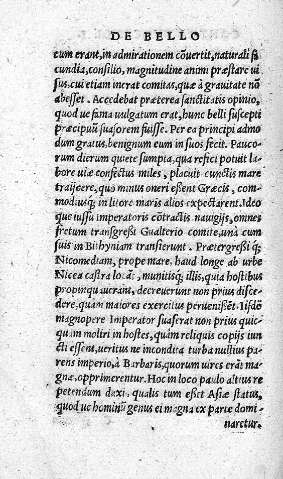 DE BELLO
eum erant, in admirationem cōuertit, naturali fa
cundia, consilio, magnitudine animi præstare ui
sus. cui etiam inerat comitas, quæ à grauitate nō
abesset. Accedebat præterea sanctitatis opinio,
quod ue fama uulgatum erat, hunc belli suscepti
præcipuū suasorem fuisse. Per ea principi admo
dum gratus, benignum eum in suos fecit. Pauco-
rum dierum quiete sumpta, qua refici potuit la-
bore uiæ confectus miles, placuit cunctis mare
traijcere, quo minus oneri essent Græcis, com-
modiusq; in litore maris alios expectarent. Ideo
que iussu imperatoris cōtractis nauigijs, omnes
fretum transgressi Gualterio comite, unà cum
suis in Bithyniam transierunt. Prætergressi q;
Nicomediam, prope mare, haud longe ab urbe
Nicea castra locāt, munitisq; illis, quia hostibus
propinqui aderant, decreuerunt non prius disce-
dere, quàm maiores exercitus peruenissēt. Iisdē
magnopere Imperator suaserat non prius quic-
quam moliri in hostes, quàm reliquis copijs iun
cti essent, ueritus ne incondita turba nullius pa-
rens imperio, à Barbaris, quorum uires erāt ma-
gnæ, opprimerentur. Hoc in loco paulo altius re
petendum duxi, qualis tum esset Asiæ status,
quod ue hominū genus ei magna ex parte domi-
naretur.